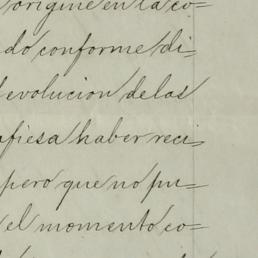 origine en la co=
do conforme di=
evolucion de las
afiesa haber reci=
pero que no pu=
el momento co=